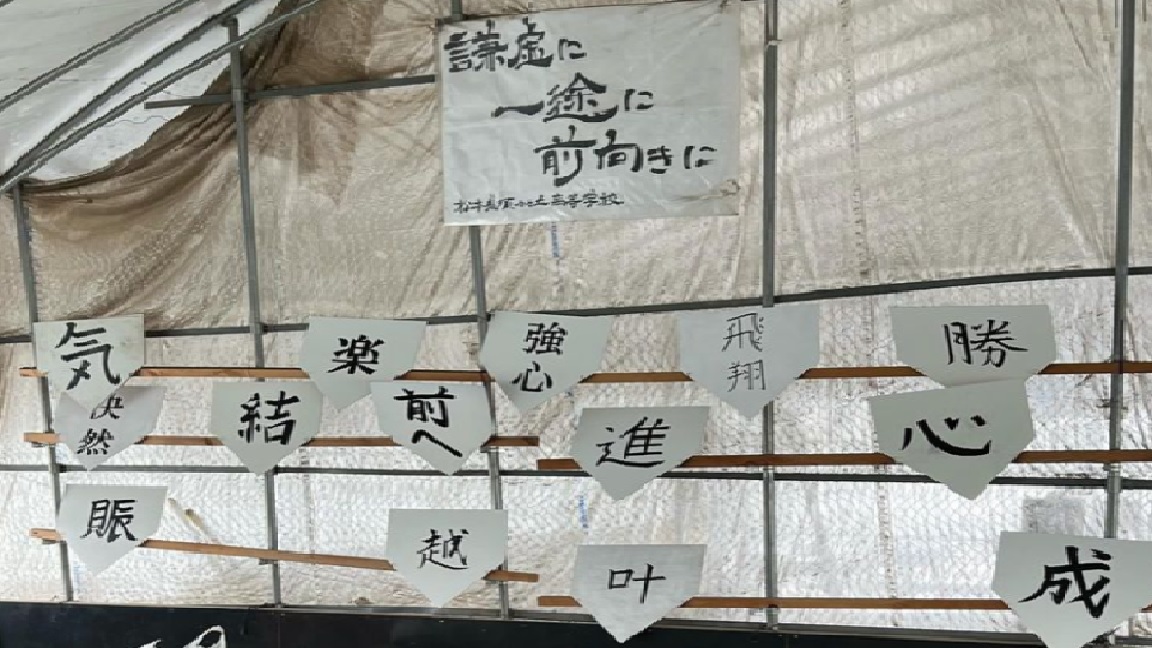 謙虚に
一途に
前向きに
気
楽
強心
飛翔
勝
然
結
前へ
進
心
賑
越
叶
成